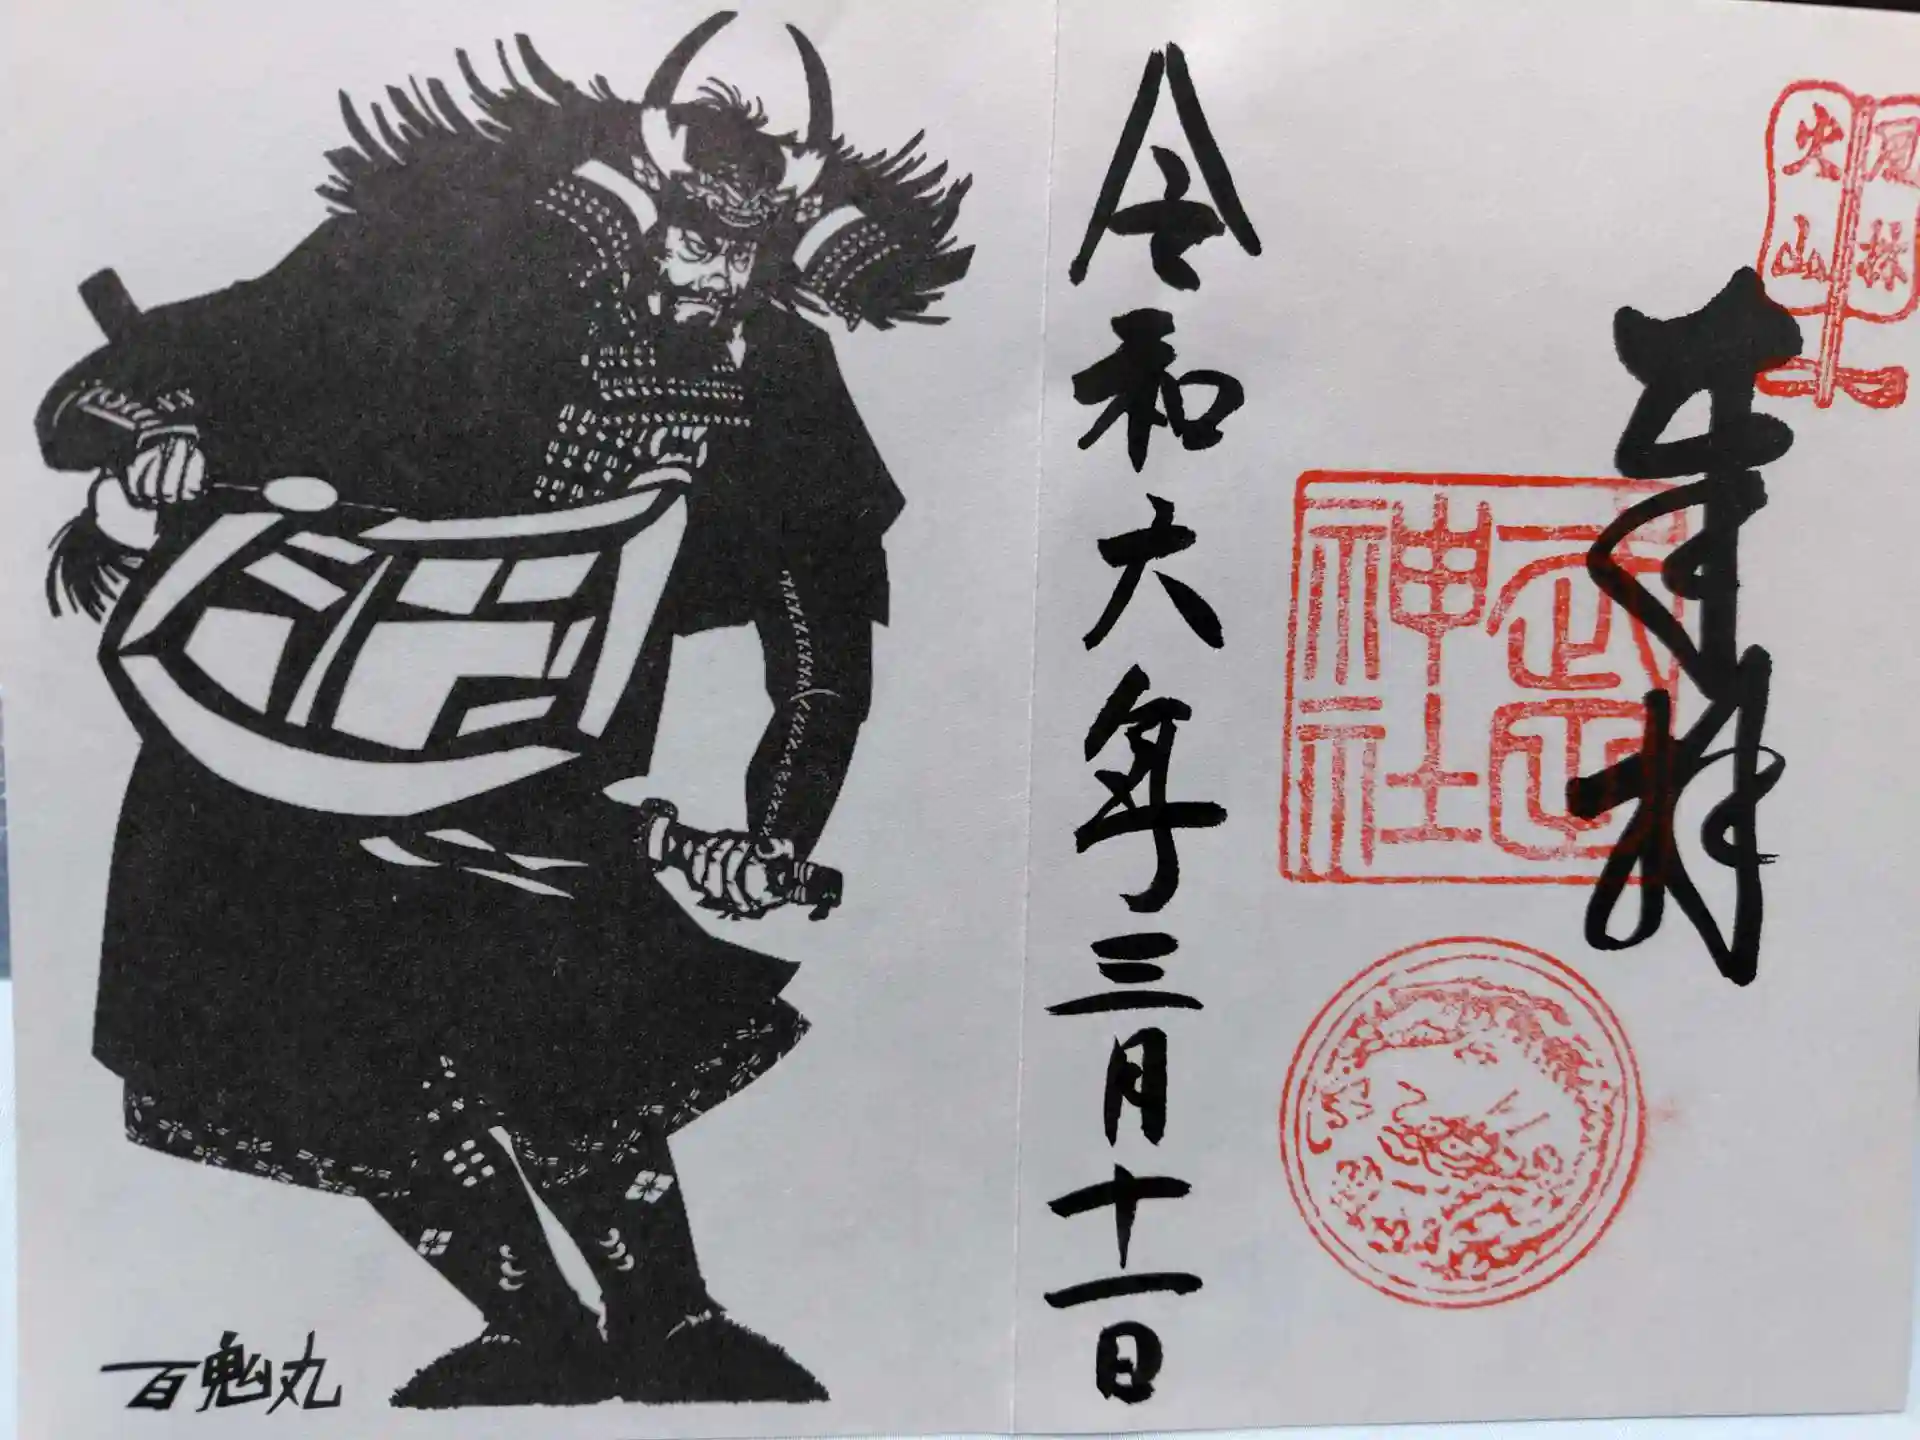 風林
火山
奉拝
武田
神社
令和六年三月十一日
百鬼丸